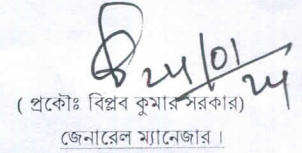 ২৪/০১/২৪
( প্রকৌঃ বিপ্লব কুমার সরকার)
জেনারেল ম্যানেজার ।